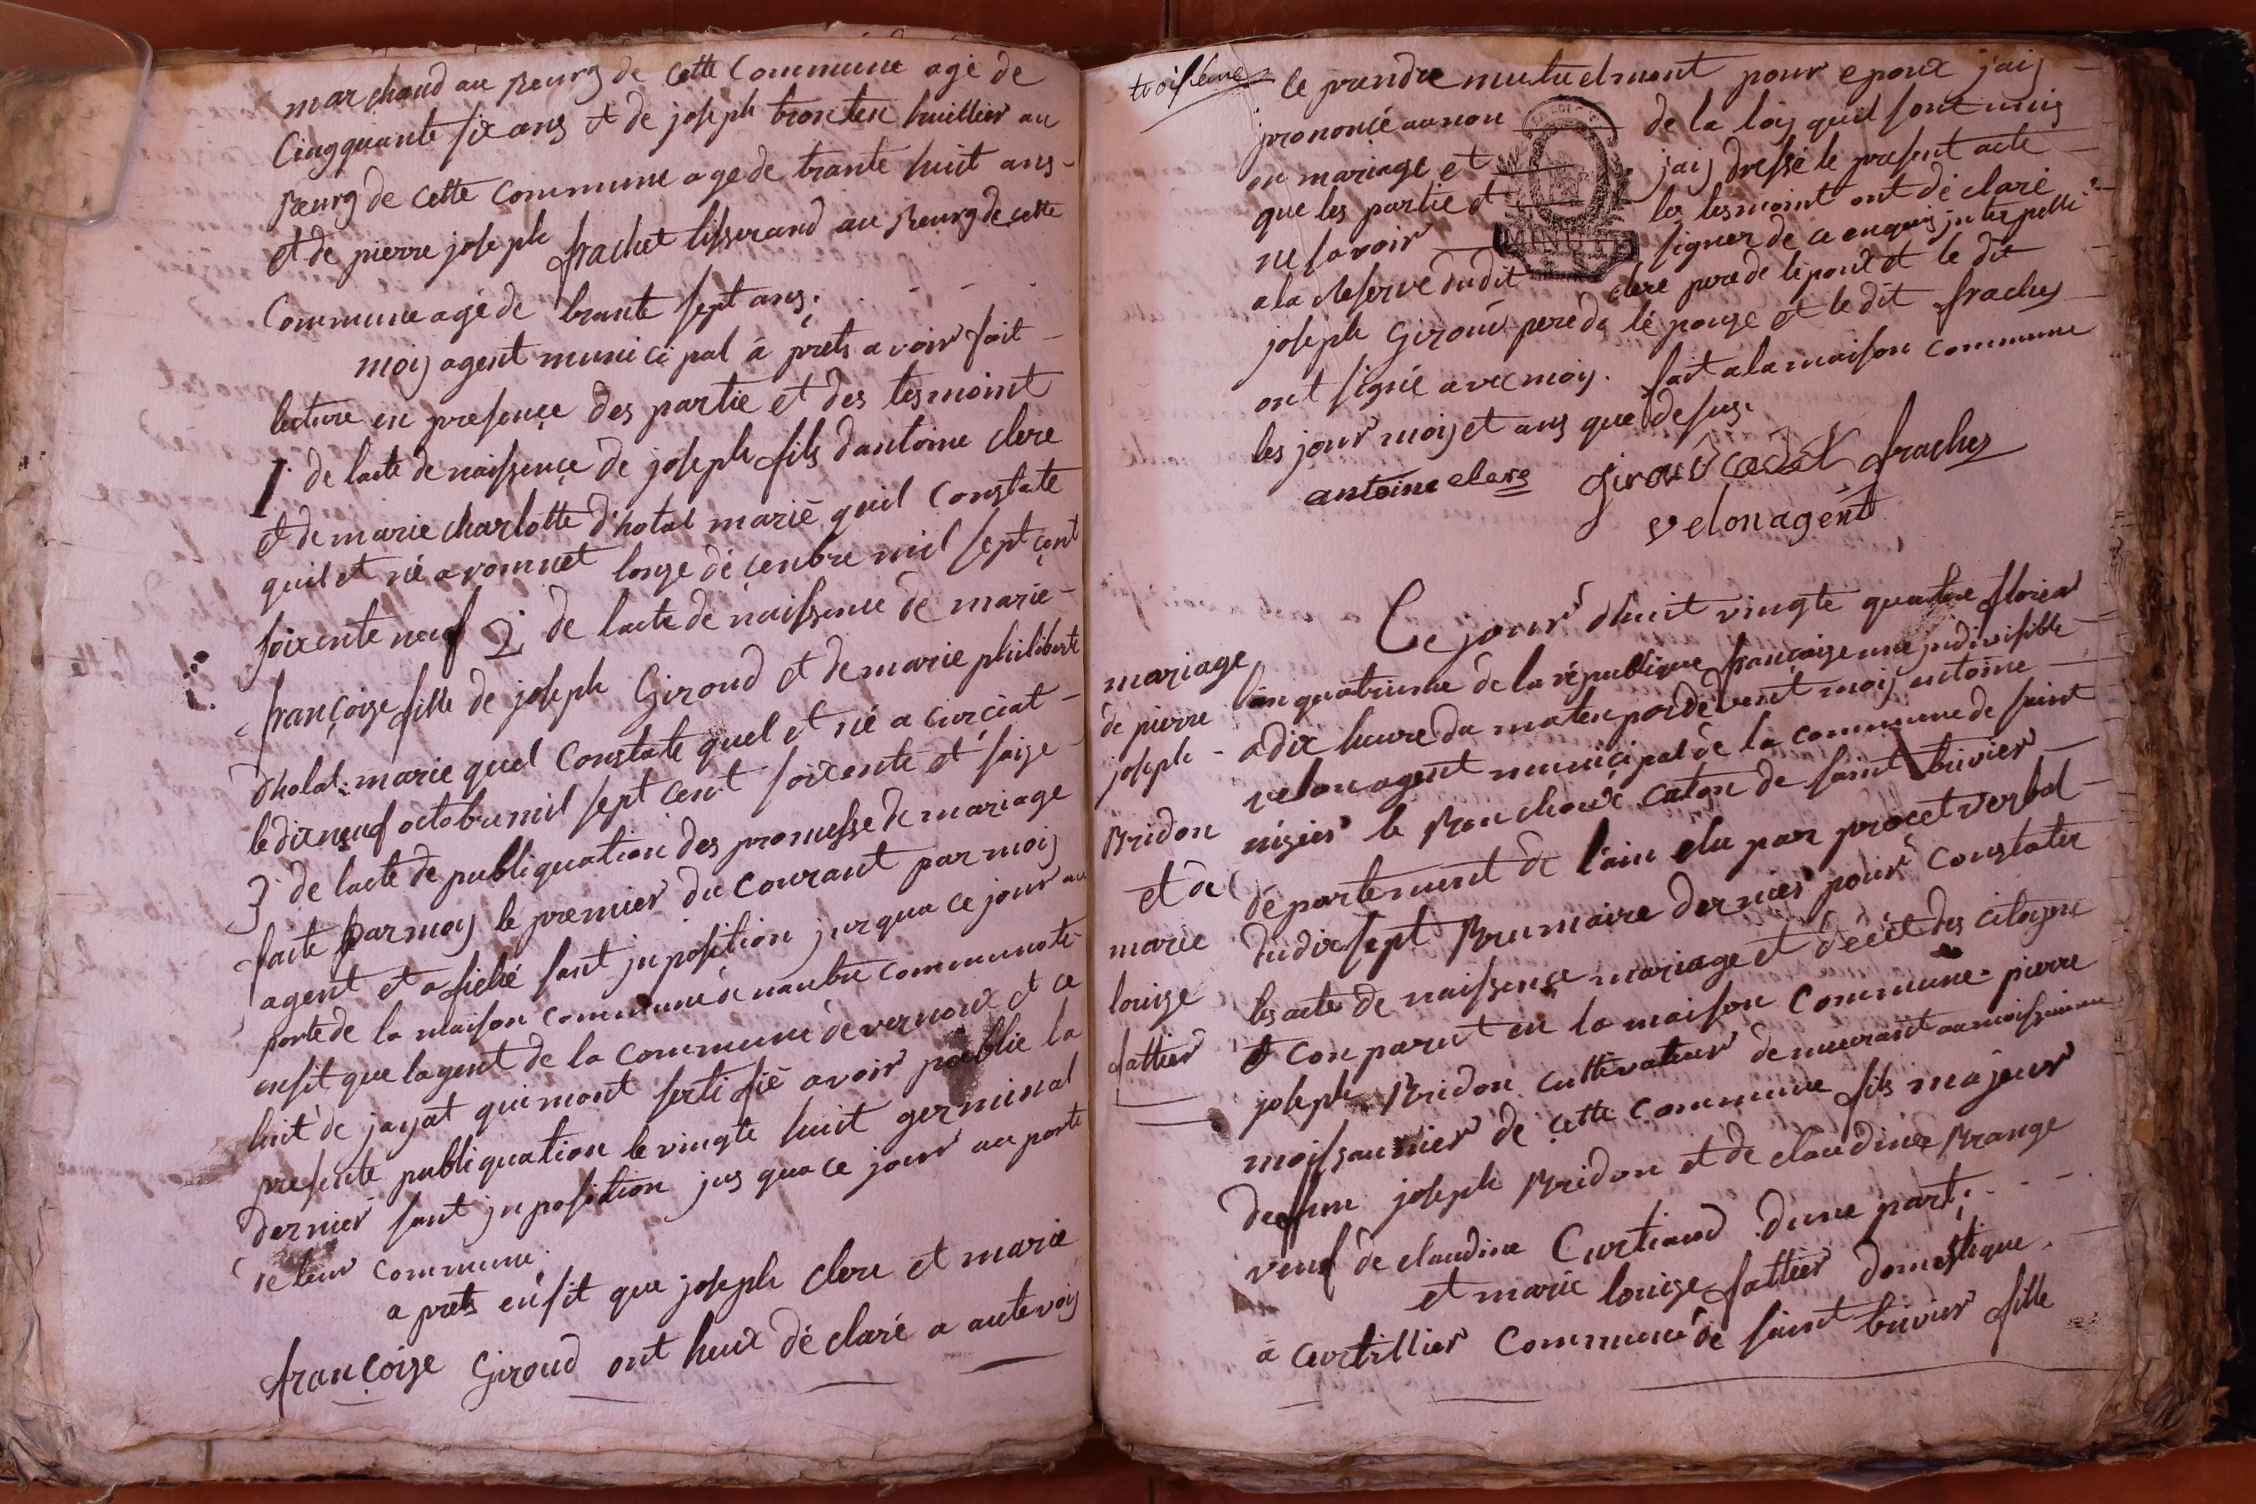 marchand au Bourg de cette Commune agé de
Cinqquante six ans et de joseph huillier au
Bourg de cette Commune agé de trante huit ans
et de pierre joseph frachet tisserand au Bourg de cette
Commune agé de trante sept ans.
moij agent municipal à prets avoir fait
lecture en presençe des partie et des tesmoint
1 de lacte de naissençe de joseph fils dantoine clerc
et de marie charlotte d'hotal marié quil Constate
quil et né a romnet lonze dé çenbre mil sept çent
soixente neuf 2 de lacte de naissence de marie
françoize fille de joseph Giroud et de marie philiberte
dholal marie quel Constate quel et né a Curciat
le dix neuf octobre mil sept cent soixente et saize
3 de lacte de publiquation des promesse de mariage
faite par moij le premier du Courant par moij
agent et afiché sant jnposition jurqua ce jour au
porte de la maison commune
ensit que lagent de la Commune de vernoux et ce
luit de jayat qui mont sertifié avoir publie la
presente publiquation le vingte huit germinal
dernier sant jnposition jus qua ce jour au porte
de leur Commune.
a prets ensit que joseph clerc et marie
françoize Giroud ont heux dé claré a autevoij
troisieme
ce prandre mutuelmant pour epoux jaij
prononcé au non de la loij quil sont unis
en mariage et jaij dressé le present acte
que les partie et les tesmoint ont dé claré
ne savoir signer de ce enquis jnterpellé
MINUTE
a la Reserve dudit clerc pere de lepoux et le dit
joseph Giroud pere de lé pouze et le dit frachet
ont signé avec moij. fait a la maison commune
les jour moij et ans que desus.
antoine clerc Giroud cadet frachet
velon agent
mariage
de pierre
joseph
Bridon
et de
marie
louize
fattier
Ce jour dhuit vingte quatre floreal
lan quatrieme de la république françaize une jndivisible
a dix heure du maten par devent moij antoine
velon agent municipal de la commune de saint
nizier le Bouchoux canton de saint trivier
département de l'ain elu par procet verbal
du dix sept Brumaire dernier pour constater
les acte de naissençe mariage et décet des citoyen
et conparut en la maison Commune pierre
joseph Bridon cultivateur demeurant au moissonnier
moissounier de cette commune fils majeur
deffun joseph Bridon et de claudine Brange
veuf de claudine Curtiaud dune part;
et marie louize fattier domestique
à Curtillier Commune de saint trivier fille